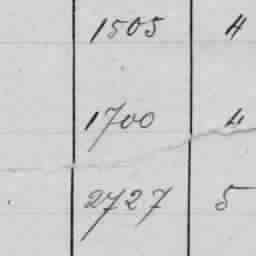 1505 4
1700 4
2727 5